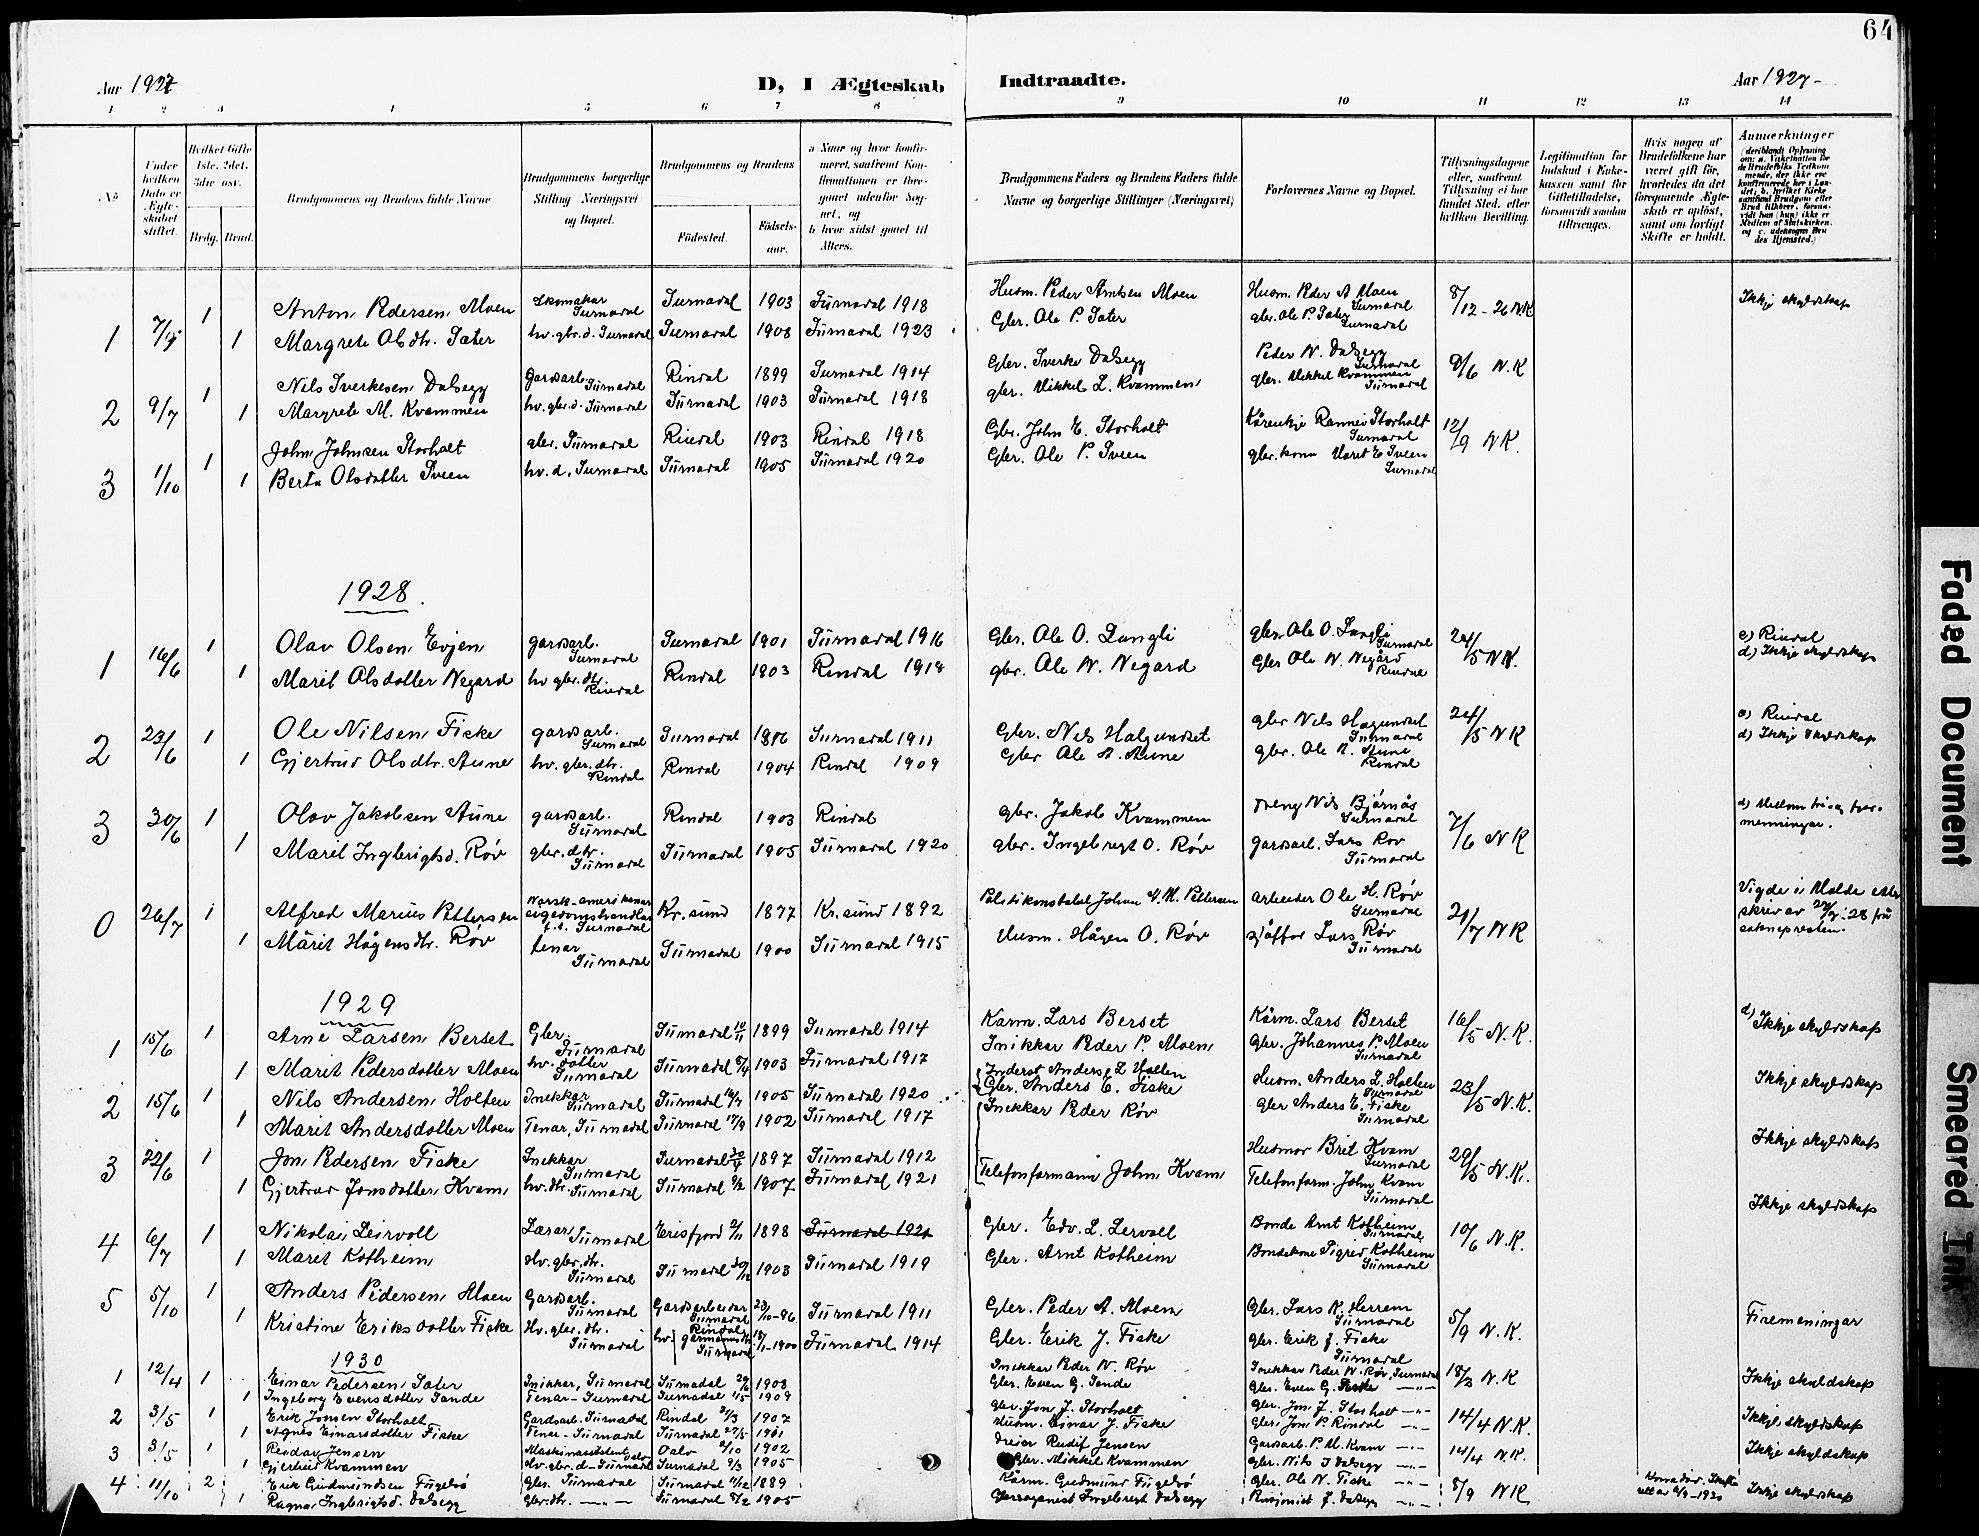 64
Aar 1927
D, I Ægteskab Indtraadte.
Aar 1927-
1 2 3 4 5 6 7 8 9 10 11 12 13 14
No
Under hvilken Dato er Ægteskabet stiftet.
Hvilket Gifte 1ste, 2det, 3die osv.
Brdg. Brud.
Brudgommens og Brudens fulde Navne
Brudgommens borgerlige Stilling Næringsvei og Bopæl.
Brudgommens og Brudens
Fødested. Fødselsaar.
a Naar og hvor konfirmeret, saafremt Konfirmationen er foregaaet udenfor Sognet, og
b hvor sidst gaaet til Alters.
Brudgommens Faders og Brudens Faders fulde Navne og borgerlige Stillinger (Næringsvei)
Forlovernes Navne og Bopæl.
Tillysningsdagene eller, saafremt Tillysning ei har fundet Sted, efter hvilken Bevilling.
Legitimation for Indskud i Enkekassen samt for Giftetilladelse, forsaavidt saadan tiltrænges.
Hvis nogen af Brudefolkene har været gift før, hvorledes da det foregaaende Ægteskab er opløst, samt om lovligt Skifte er holdt.
Anmærkninger
1 7/4 1 Anton Pedersen Moen Skomakar Surnadal Surnadal 1903 Surnadal 1918 Husm. Peder Arntsen Moen Husm. Peder A Moen Surnadal 8/12-26 NK Ikkje skyldskap
1 Margrete Olsdtr. Sæter hv. gbr. d. Surnadal Surnadal 1908 Surnadal 1923 Gbr. Ole P. Sæter gbr. Ole P. Sæter Surnadal
2 9/7 1 Nils Sverkesen Dalsegg Gardsarb. Surnadal Rindal 1899 Surnadal 1914 Gbr. Sverke Dalsegg Peder N. Dalsegg Surnadal 9/6 N.K
1 Margrete M. Kvammen hv. gbr. d. Surnadal Surnadal 1903 Surnadal 1918 gbr. Mikkel L. Kvammen gbr. Mikkel Kvammen Surnadal
3 1/10 1 John Johnsen Storholt gbr. Surnadal Rindal 1903 Rindal 1918 Gbr. John E. Storholt Kårenkje Rannei Storholt Surnadal 12/9 NK.
1 Berta Olsdatter Sveen hv. d. Surnadal Surnadal 1905 Surnadal 1920 Gbr. Ole P. Sveen gbr. kona Marit E Sveen Surnadal
1928.
1 16/6 1 Olav Olsen Evjen gardsarb. Surnadal Surnadal 1901 Surnadal 1916 Gbr. Ole O. Langli gbr. Ole O. Langli Surnadal 24/5 NK. c) Rindal d) Ikkje skyldskap
1 Marit Olsdatter Negard hv gbr. dtr. Rindal Rindal 1903 Rindal 1918 gbr. Ole N. Negard Gbr Ole N. Negård Rindal
2 23/6 1 Ole Nilsen Fiske gardsarb. Surnadal Surnadal 1896 Surnadal 1911 Gbr. Nils Halgunset gbr Nils Halgunset Surnadal 24/5 NK c) Rindal d) Ikkje skyldskap
1 Gjertrud Olsdtr. Aune hv. gbr. dtr. Rindal Rindal 1904 Rindal 1909 Gbr Ole A. Aune gbr. Ole A. Aune Rindal
3 30/6 1 Olav Jakobsen Aune gardsarb. Surnadal Rindal 1903 Rindal gbr. Jakob Kvammen dreng Nils Bjørnås Surnadal 7/6 NK d) Millom tri og firmenningar.
1 Marit Ingbrigtsd. Røv gbr. dtr. Surnadal Surnadal 1905 Surnadal 1920 gbr. Ingebregt O. Røv gardsarb. Lars Røv Surnadal
0 26/7 1 Alfred Marius Pettersen Norsk-amerikanar eigedomshandlar f.t. Surnadal Kr.sund 1877 Kr.sund 1892 Politikonstabel Johan A. M. Pettersen arbeider Ole H. Røv Surnadal 21/7 NK Vigde i Molde etter skriv av 27/7-28 frå sokneprsten.
1 Mårit Hågensdtr. Røv tenar Surnadal Surnadal 1900 Surnadal 1915 Husm. Hågen O. Røv sjåffør Lars Røv Surnadal
1929
1 15/6 1 Arne Larsen Berset Gbr. Surnadal Surnadal 10/11 1899 Surnadal 1914 Kårm. Lars Berset Kårm. Lars Berset 16/5 N.K. d) Ikkje skyldskap
1 Marit Pedersdatter Moen hv. dotter Surnadal Surnadal 1903 Surnadal 1917 Snikkar Peder P. Moen Gbr. Johannes P. Moen Surnadal
2 15/6 1 Nils Andersen Holten Snekkar Surnadal Surnadal 1905 Surnadal 1920 Inderst Anders L Holten Husm. Anders L. Holten Surnadal 23/5 N.K. Ikkje skyldskap
1 Marit Andersdotter Moen Tenar, Surnadal Surnadal 17/9 1902 Surnadal 1917 Gbr. Anders E. Fiske Gbr Anders E. Fiske Surnadal
3 22/6 1 Jon Pedersen Fiske Snekkar Surnadal Surnadal 1897 Surnadal 1912 Snekkar Peder Røv Husmor Brit Kvam Surnadal 29/5 N.K. Ikkje skyldskap
1 Gjertrud Jonsdotter Kvam hv. dtr. Surnadal Surnadal 1907 Surnadal 1921 Telefonformann John Kvam Telefonform. John Kvam Surnadal
4 6/7 1 Nikolai Leirvoll Lærar Surnadal Erisfjord 2/11 1898 Surnadal 1921 Gbr. Edv. L. Lervoll Bonde Arnt Kotheim Surnadal 10/6 N.K. Ikkje skyldskap
1 Marit Kotheim Hv. gbr. dtr. Surnadal Surnadal 1903 Surnadal 1919 Gbr. Arnt Kotheim Bondekone Sigrid Kotheim Surnadal
5 5/10 1 Anders Pedersen Moen Gardsarb. Surnadal Gardsarbeidar Surnadal 23/10-96 Surnadal 1911 Gbr. Peder A. Moen Gbr. Lars K. Herrem Surnadal 5/9 N.K. Firemeningar
1 Kristine Eriksdotter Fiske Hv. gbr. dtr. Surnadal Rindal Surnadal 1900 Surnadal 1914 Gbr. Erik J. Fiske gbr. Erik J. Fiske Surnadal
1930
1 12/4 1 Einar Pedersen Sæter Snikkar, Surnadal Surnadal 1903 Snekkar Peder N. Røv Snekkar Peder N. Røv, Surnadal 18/3 N.K Ikkje skyldskap
1 Ingeborg Evensdotter Sande Tenar-Surnadal Surnadal 1/5 1909 Gbr. Even G. Sande Gbr. Even G. Sande —"—
2 3/5 1 Erik Jonsen Storholt Gardsarb. Surnadal Rindal 1907 Gbr. Jon J. Storholt Gbr. Jon J. Storholt —"— 14/4 N.K. Ikkje skyldskap
1 Agnes Einarsdotter Fiske Tenar-Surnadal Surnadal 27/5 1901 Husm. Einar J. Fiske Gbr. Jon P. Rindal —"—
3 3/5 1 Reidar Jensen Maskinassistent Oslo Oslo 2/10 1902 Dreier Rudolf Jensen Gardsarb. P. M. Kvam —"— 14/4 N.K. Ikkje skyldskap
1 Gjertrud Kvammen Hv. gbr. d-Surnadal Surnadal 9/3 1905 Gbr. Mikkel Kvammen gbr. Nils J Dalsegg —"—
4 11/10 2 Erik Gudmundsen Fugelsø Gbr. Surnadal Surnadal 1889 Kårm. Gudmund Fugelsø Gbr. Ole N. Fiske —"— 8/9 NK Ikkje skyldskap
1 Ragna Ingbrigtsd. Dalsegg Gbr. dtr. —"— Surnadal 1905 Ingebregt Dalsegg Pensjonist J. Dalsegg —"—
Faded Document
Smeared Ink